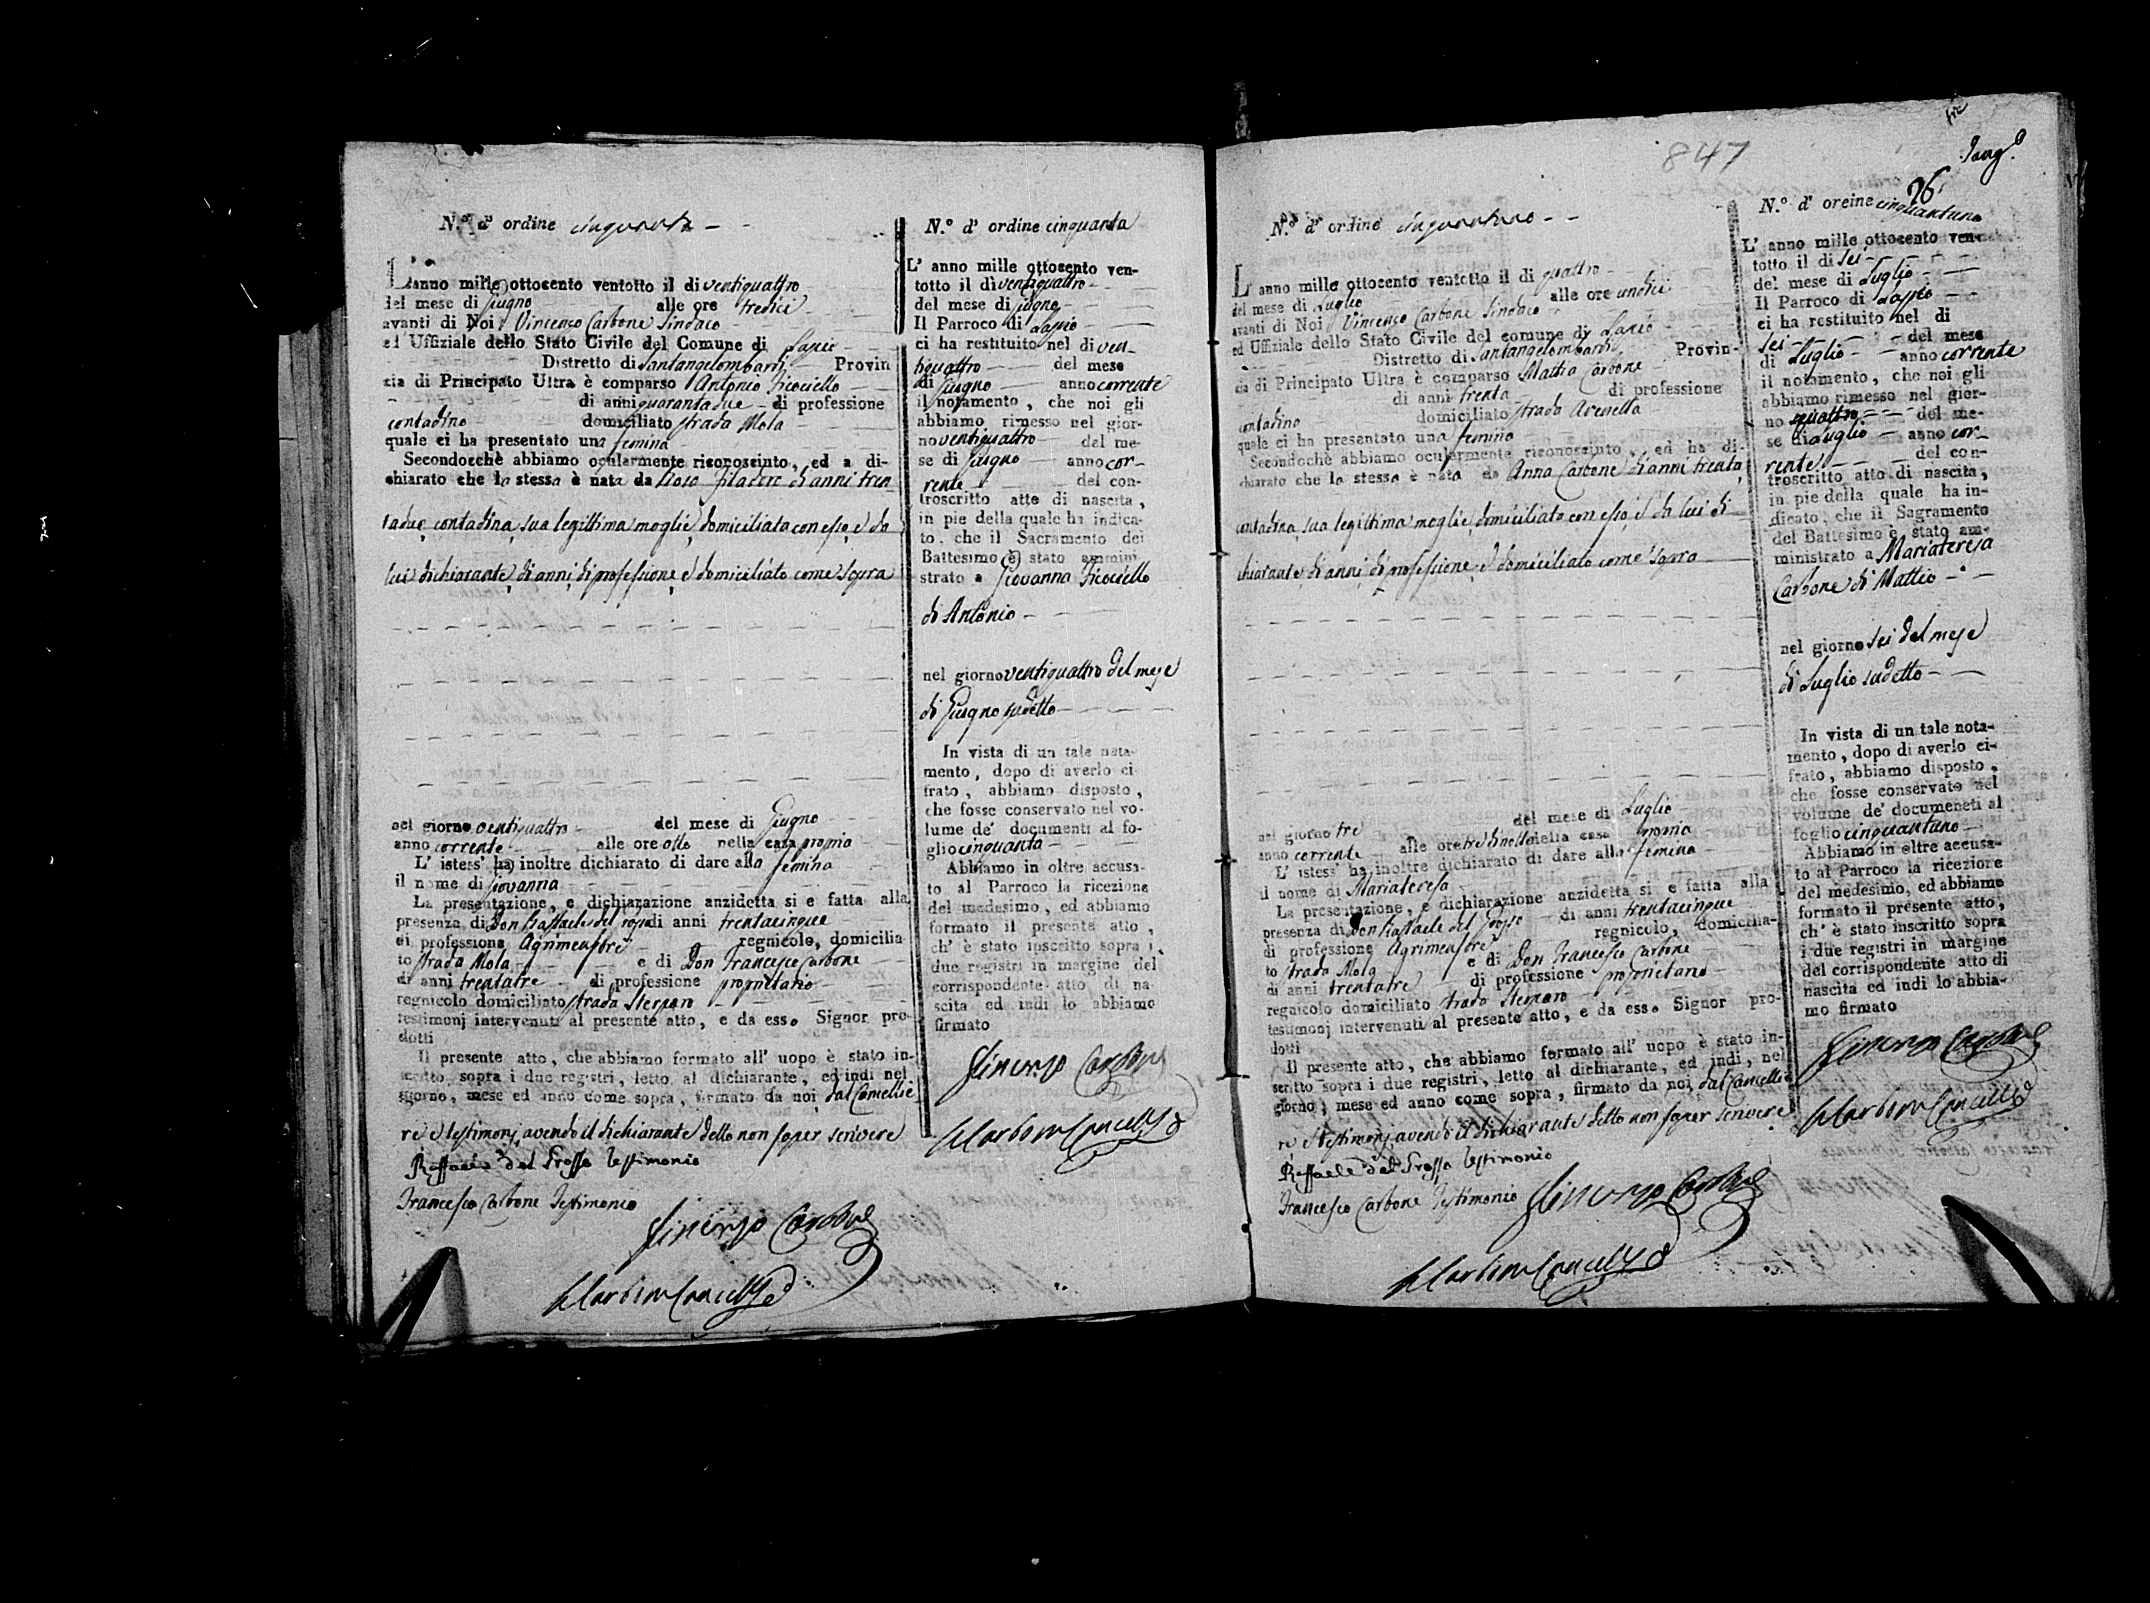 N.º d' ordine cinquanta
L'anno mille ottocento ventotto il di ventiquattro
del mese di Giugno alle ore tredici
avanti di Noi Vincenzo Carbone Sindaco
ed Uffiziale dello Stato Civile del Comune di Lapio
Distretto di Santangelombardi Provin
cia di Principato Ultra è comparso Antonio Ficociello
di anni quarantadue di professione
contadino domiciliato strada Mola
quale ci ha presentato una femina
Secondocchè abbiamo ocularmente riconosciuto, ed a di-
chiarato che la stessa è nata da di anni tren
tadue, contadina, sua legittima moglie, domiciliata con esso, e da
lui dichiarante, di anni, di professione, e domiciliato come sopra
nel giorno ventiquattro del mese di Giugno
anno corrente alle ore otto nella casa propria
L' istess' ha inoltre dichiarato di dare alla femina
il nome di Giovanna
La presentazione, e dichiarazione anzidetta si e fatta alla
presenza di Don Raffaele del Grosso di anni trentacinque
di professione Agrimensore regnicolo, domicilia
to strada Mola e di Don Francesco Carbone
di anni trentatre di professione proprietario
regnicolo domiciliato strada Sterparo
testimonj intervenuti al presente atto, e da esso Signor pro-
dotti
Il presente atto, che abbiamo formato all' uopo è stato in-
scritto sopra i due registri, letto al dichiarante, ed indi nel
giorno, mese ed anno come sopra, firmato da noi, dal Cancellie
re e testimonj, avendo il dichiarante detto non saper scrivere
Raffaele del Grosso testimonio
Francesco Carbone Testimonio
Vincenzo Carbone
N.º d' ordine cinquanta
L' anno mille ottocento ven-
totto il dì ventiquattro
del mese di Giugno
Il Parroco di Lapio
ci ha restituito nel di ven-
tiquattro del mese
di Giugno anno corrente
il notamento, che noi gli
abbiamo rimesso nel gior-
no ventiquattro del me-
se di Giugno anno cor-
rente del con-
troscritto atto di nascita,
in pie della quale ha indica-
to, che il Sacramento del
Battesimo è stato ammini
strato a Giovanna Ficociello
di Antonio
nel giorno ventiquattro del mese
di Giugno sudetto
In vista di un tale nota-
mento, dopo di averlo ci-
frato, abbiamo disposto,
che fosse conservato nel vo-
lume de' documenti al fo-
glio cinquanta
Abbiamo in oltre accusa-
to al Parroco la ricezione
del medesimo, ed abbiamo
formato il presente atto,
ch' è stato inscritto sopra i
due registri in margine del
corrispondente atto di na-
scita ed indi lo abbiamo
firmato
Vincenzo Carbone
847
26
N.º d' ordine cinquantuno
L' anno mille ottocento ventotto il di quattro
del mese di Luglio alle ore undici
avanti di Noi Vincenzo Carbone Sindaco
ed Uffiziale dello Stato Civile del comune di Lapio
Distretto di Santangelombardi Provin-
cia di Principato Ultra è comparso Mattia Carbone
di anni trenta di professione
contadino domiciliato strada
quale ci ha presentato una femina
Secondochè abbiamo ocularmente riconosciuto, ed ha di-
chiarato che la stessa è nata da Anna Carbone di anni trenta,
contadina, sua legittima moglie, domiciliata con esso, e da lui di-
chiarante, di anni, di professione, e domiciliato come sopra
nel giorno tre del mese di Luglio
anno corrente alle ore tre di notte nella casa propria
L' istess' ha inoltre dichiarato di dare alla femina
il nome di Mariateresa
La presentazione, e dichiarazione anzidetta si e fatta alla
presenza di Don Raffaele del Grosso di anni trentacinque
di professione Agrimensore regnicolo, domicilia-
to strada Mola e di Don Francesco Carbone
di anni trentatre di professione proprietario
regnicolo domiciliato strada Sterparo
testimonj intervenuti al presente atto, e da esso Signor pro-
dotti
Il presente atto, che abbiamo formato all' uopo è stato in-
scritto sopra i due registri, letto al dichiarante, ed indi, nel
giorno, mese ed anno come sopra, firmato da noi, dal Cancellie
re e testimonj, avendo il dichiarante detto non saper scrivere
Raffaele del Grosso testimonio
Francesco Carbone Testimonio
Vincenzo Carbone
N.º d' oreine cinquantuno
L' anno mille ottocento ven-
totto il di sei
del mese di Luglio
Il Parroco di Lapio
ci ha restituito nel di
sei del mese
di Luglio anno corrente
il notamento, che noi gli
abbiamo rimesso nel gior-
no quattro del me-
se di Luglio anno cor-
rente del con-
troscritto atto di nascita,
in pie della quale ha in-
dicato, che il Sagramento
del Battesimo è stato am-
ministrato a Mariateresa
Carbone di Mattia
nel giorno sei del mese
di Luglio sudetto
In vista di un tale nota-
mento, dopo di averlo ci-
frato, abbiamo disposto,
che fosse conservato nel
volume de' documeneti al
foglio cinquantuno
Abbiamo in oltre accusa-
to al Parroco la ricezione
del medesimo, ed abbiamo
formato il presente atto,
ch' è stato inscritto sopra
i due registri in margine
del corrispondente atto di
nascita ed indi lo abbia-
mo firmato
Vincenzo Carbone